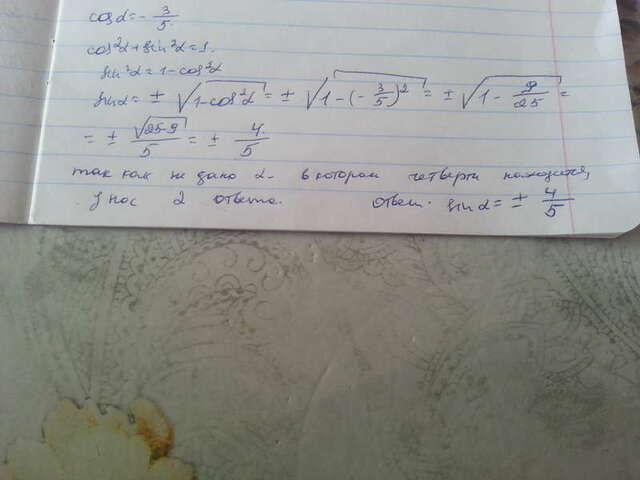 cos α = - 3/5
cos²α + sin²α = 1.
sin²α = 1 - cos²α
sin α = ± √(1-cos²α) = ± √(1-(-3/5)²) = ± √(1 - 9/25) =
= ± √(25-9)/5 = ± 4/5
так как не дано α - в котором четверти находится,
у нас 2 ответа. Ответ. sin α = ± 4/5